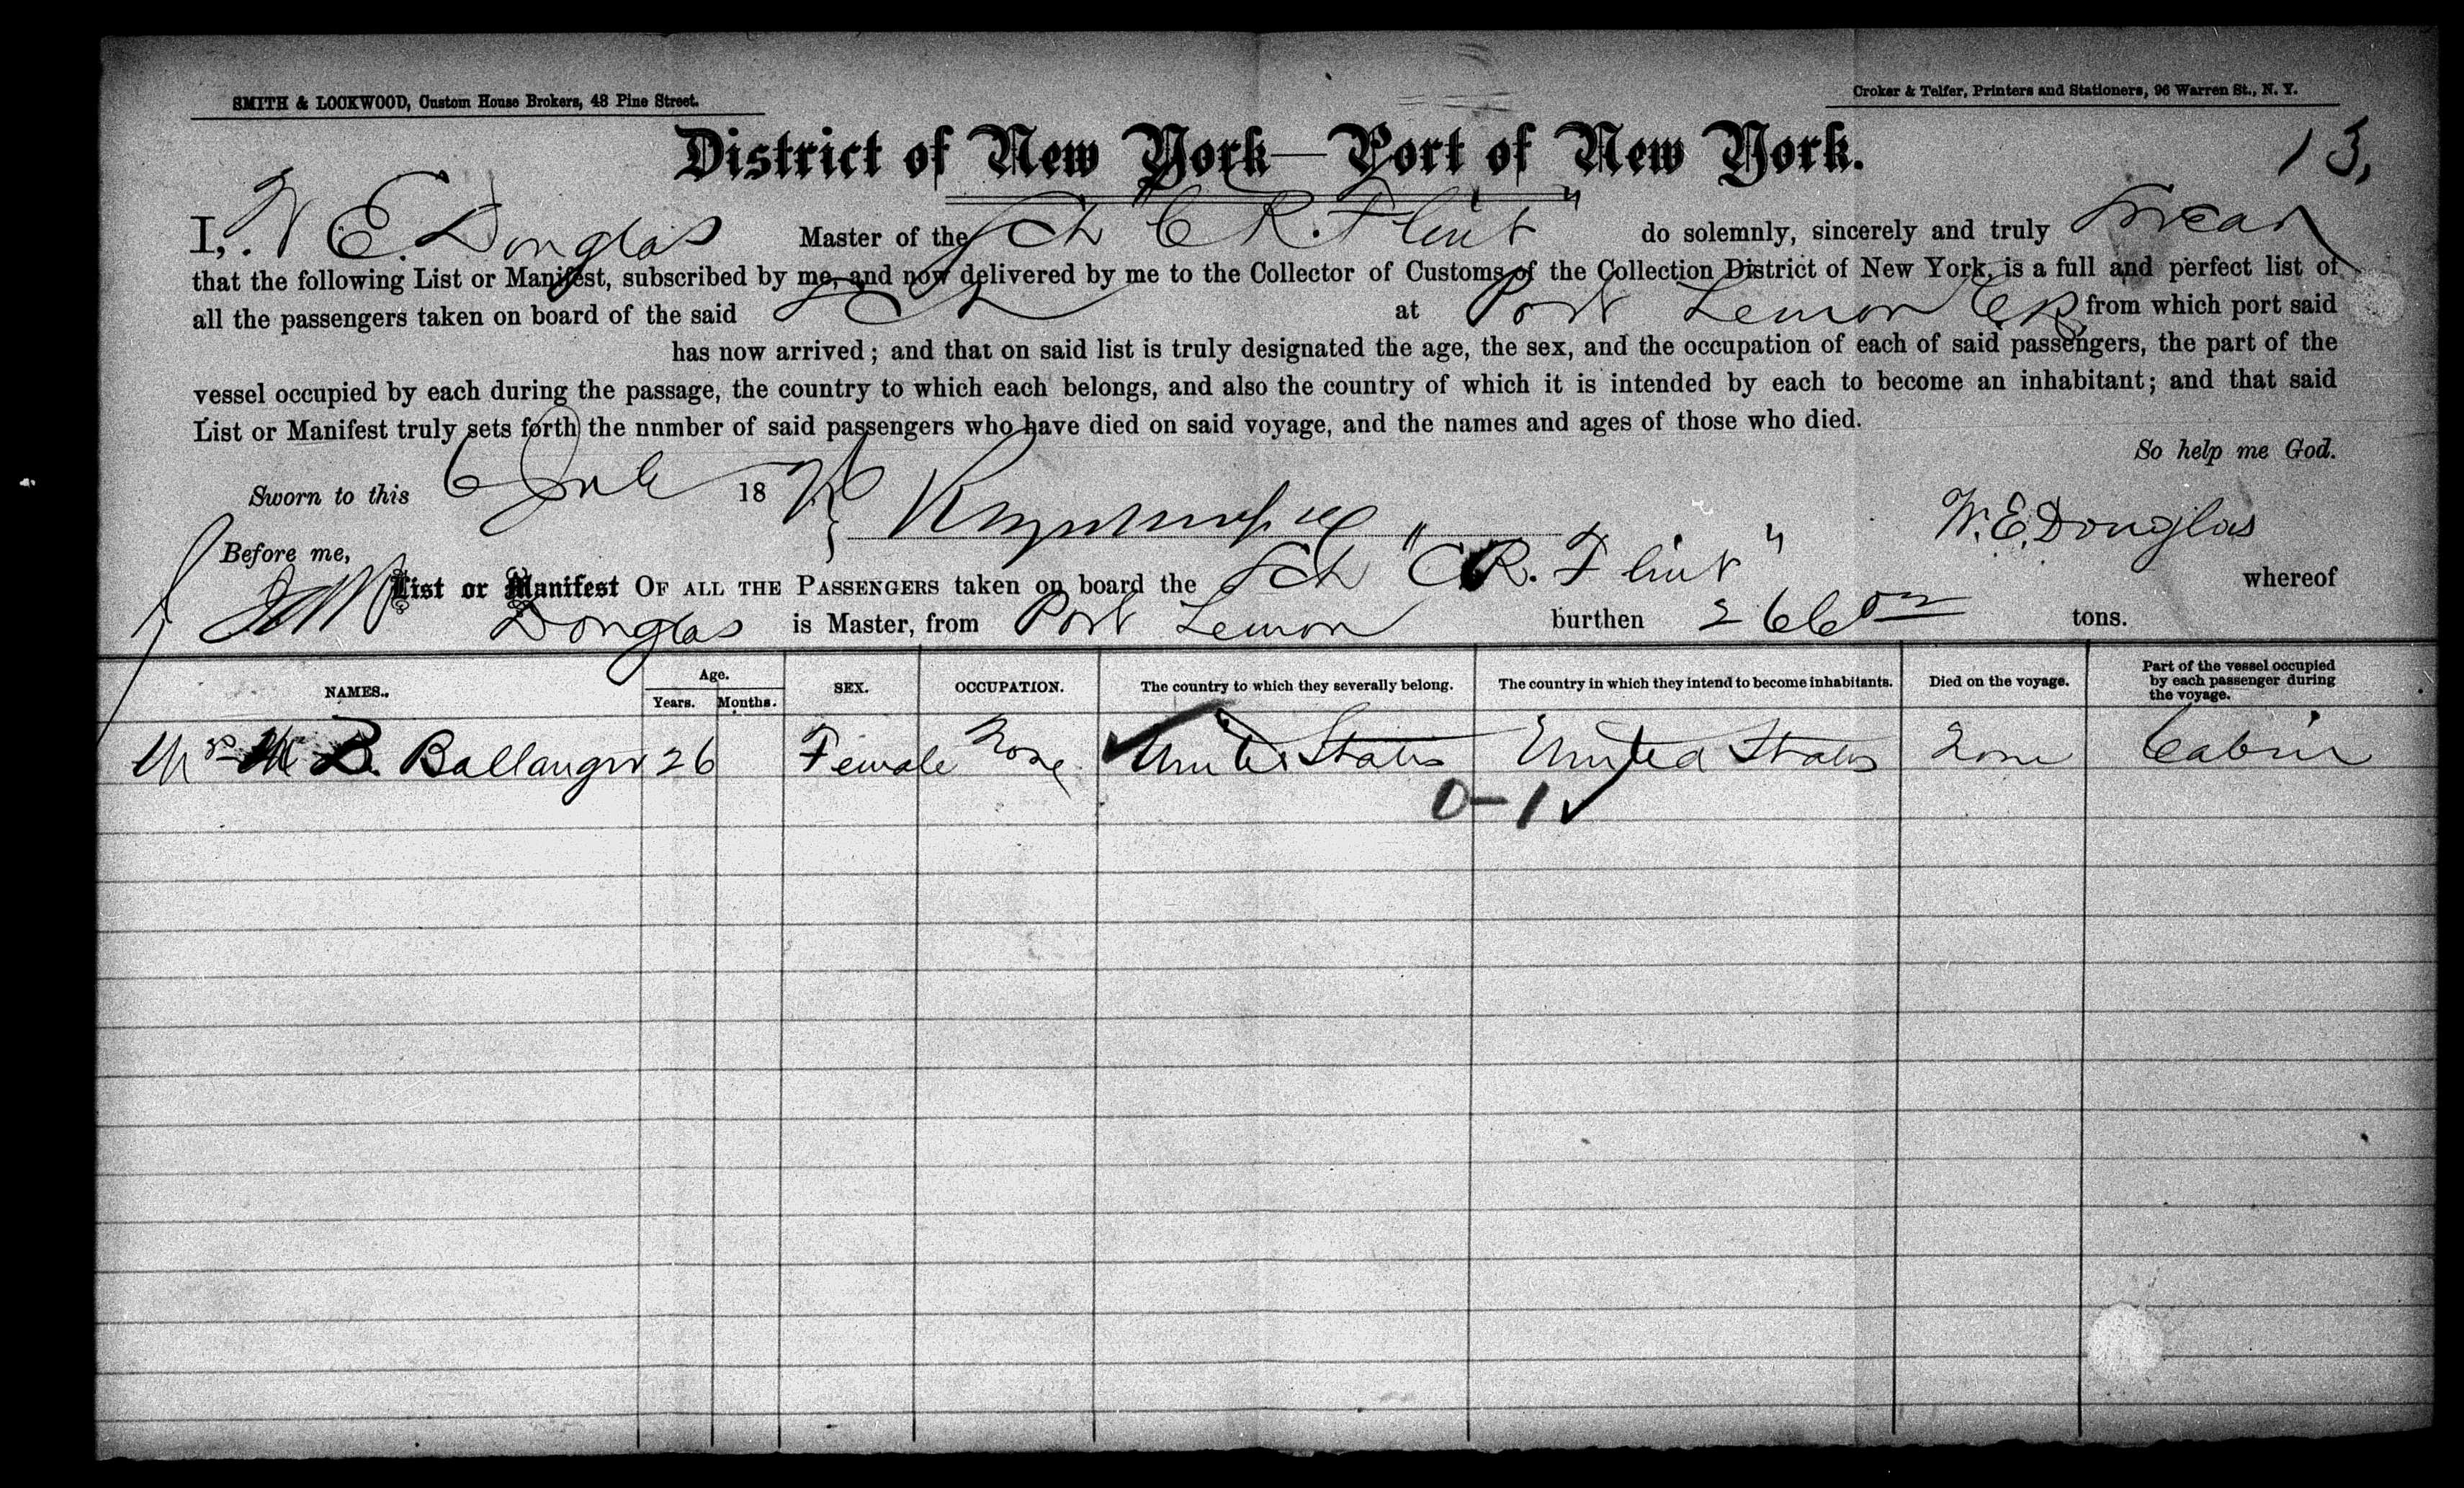 SMITH & LOCKWOOD, Custom House Brokers, 48 Pine Street.
Croker & Telfer, Printers and Stationers, 96 Warren St., N. Y.
District of New York—Port of New York.
13,
I, W E. Douglas Master of the Sch "C R. Flint" do solemnly, sincerely and truly swear
that the following List or Manifest, subscribed by me, and now delivered by me to the Collector of Customs of the Collection District of New York, is a full and perfect list of
all the passengers taken on board of the said Sch at Port Lemon C R from which port said
has now arrived; and that on said list is truly designated the age, the sex, and the occupation of each of said passengers, the part of the
vessel occupied by each during the passage, the country to which each belongs, and also the country of which it is intended by each to become an inhabitant; and that said
List or Manifest truly sets forth the nnmber of said passengers who have died on said voyage, and the names and ages of those who died.
So help me God.
Sworn to this 6 18
W. E. Douglas
Before me,
List or Manifest OF ALL THE PASSENGERS taken on board the Sch "C R. Flint" whereof
Douglas is Master, from Port Lemon burthen 266 tons.
NAMES. Age. Years. Months. SEX. OCCUPATION. The country to which they severally belong. The country in which they intend to become inhabitants. Died on the voyage. Part of the vessel occupied by each passenger during the voyage.
Mrs B. Ballanger 26 Female None United States United States None Cabin
0-1